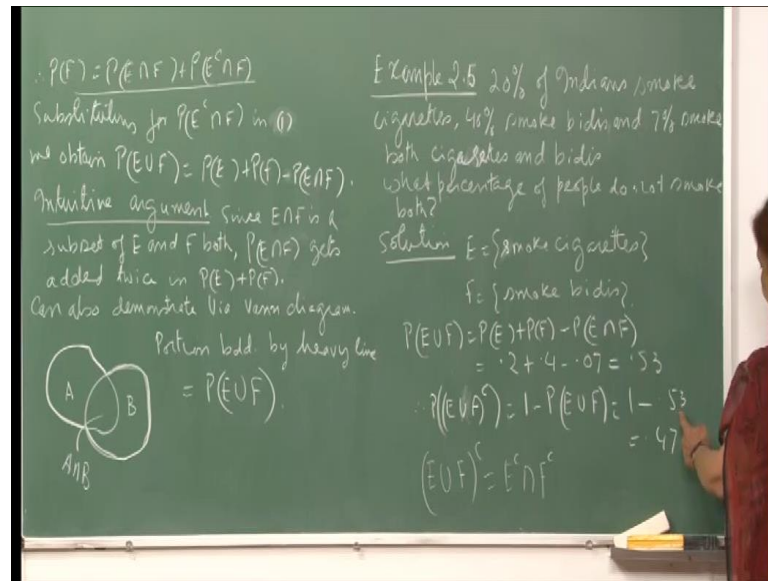 ∴ P(F) = P(E∩F) + P(Eᶜ∩F)
Substituting for P(Eᶜ∩F) in (1)
we obtain P(E∪F) = P(E) + P(F) - P(E∩F).
Intuitive argument Since E∩F is a
subset of E and F both, P(E∩F) gets
added twice in P(E) + P(F).
Can also demonstrate via Venn diagram.
Portion bdd. by heavy line
= P(E∪F).
A
B
A∩B
Example 2.5 20% of Indians smoke
cigarettes, 40% smoke bidis, and 7% smoke
both cigarettes and bidis
what percentage of people do not smoke
both?
Solution E = {smoke cigarettes}
F = {smoke bidis}.
P(E∪F) = P(E) + P(F) - P(E∩F)
= .2 + .4 - .07 = .53
∴ P((E∪F)ᶜ) = 1 - P(E∪F) = 1 - .53
= .47
(E∪F)ᶜ = Eᶜ∩Fᶜ